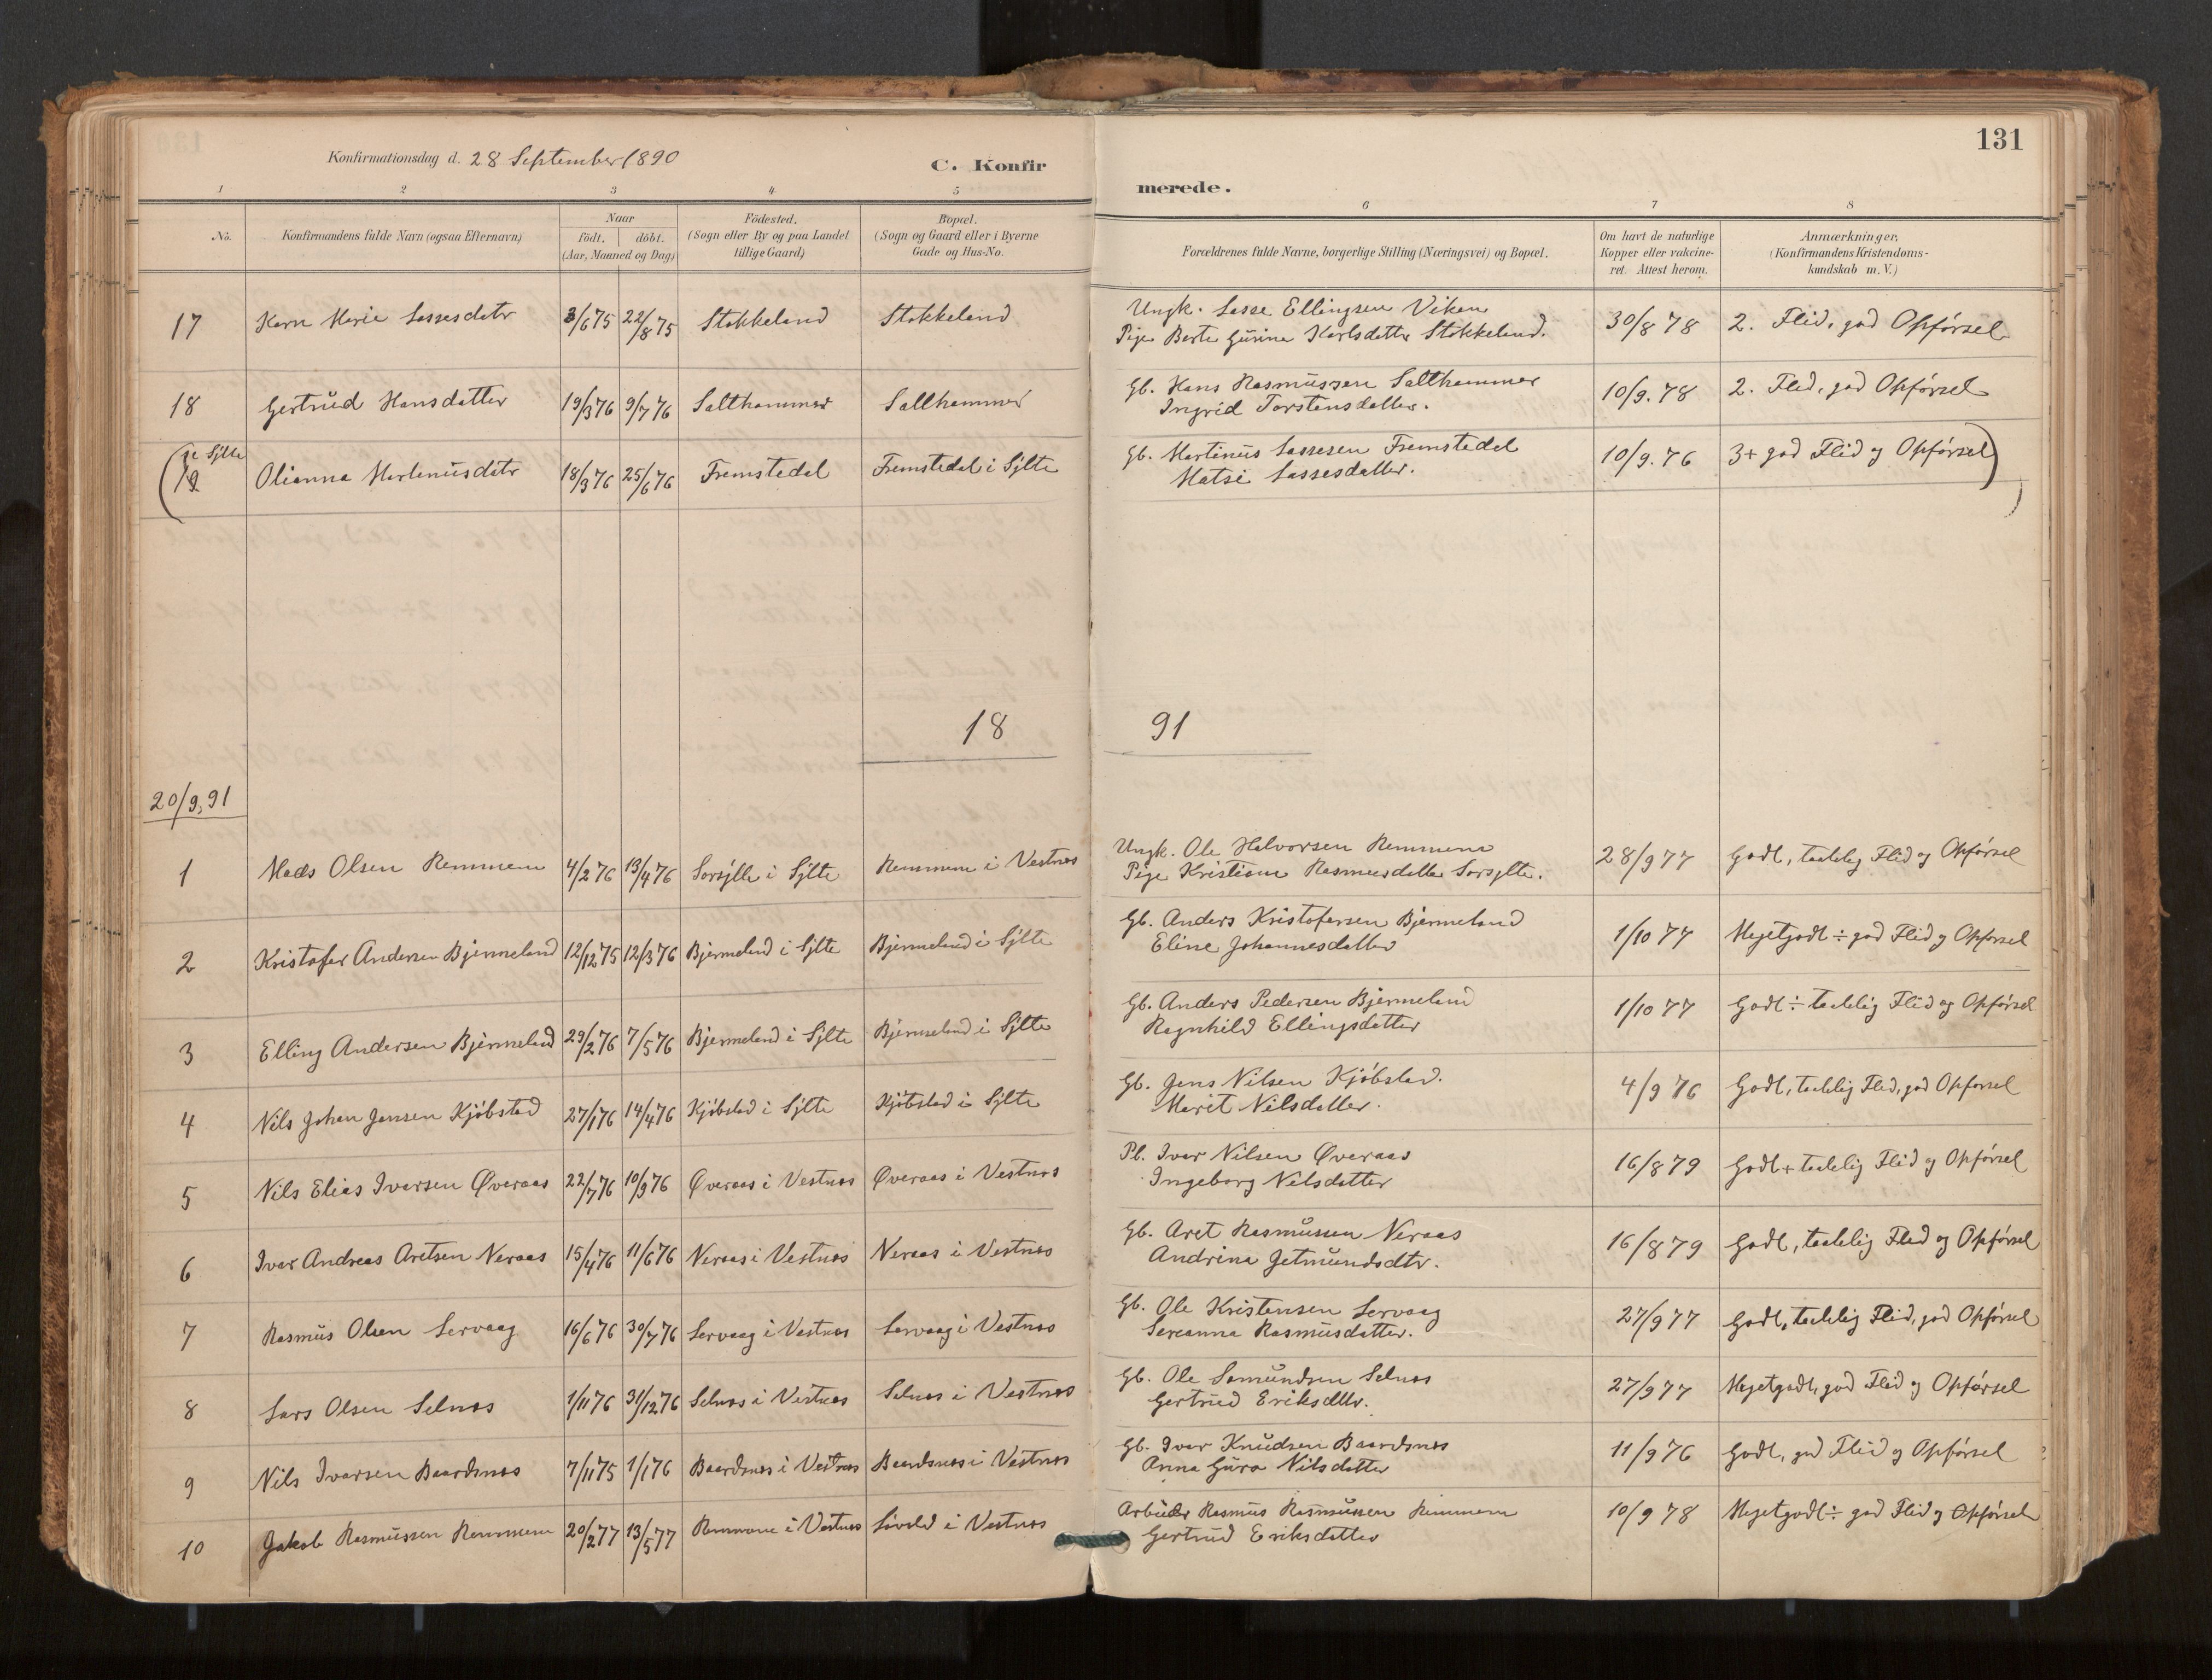 131
Konfirmationsdag d. 28 September 1890
C. Konfirmerede.
1 2 3 4 5 6 7 8
No.
Konfirmandens fulde Navn (ogsaa Efternavn)
Naar
födt. döbt.
(Aar, Maaned og Dag)
Födested.
(Sogn eller By og paa Landet
tillige Gaard)
Bopæl.
(Sogn og Gaard eller i Byerne
Gade og Hus-No.
Forældrenes fulde Navne, borgerlige Stilling (Næringsvei) og Bopæl.
Om havt de naturlige
Kopper eller vakcine-
ret Attest herom.
Anmærkninger,
(Konfirmandens Kristendoms-
kundskab m. V.)
17 Karn Marie Lassesdatr 3/6 75 22/8 75 Stokkeland Stokkeland Ungk. Lasse Ellingsen Viken
Pige Berte Gurina Karlsdatter Stokkeland. 30/8 78 2. Flid, god Opförsel
18 Gertrud Hansdatter 19/3 76 9/7 76 Salthammer Salthammer Gb. Hans Rasmussen Salthammer
Ingrid Torstensdatter. 10/9. 78 2. Flid, god Opförsel
(Sylte
19 Olianna Martinusdatr 18/3 76 25/6 76 Fremstedal Fremstedal i Sylte Gb. Martinus Lassesen Fremstedal
Matsi Lassesdatter. 10/9. 76 3+ god Flid og Opförsel)
18 91
20/9, 91
1 Mads Olsen Remmem 4/2 76 13/4 76 Sorsylte i Sylte Remmem i Vestnes Ungk. Ole Halvorsen Remmem
Pige Kristiane Rasmusdatter Sorsylte. 28/9 77 Godt, taalelig Flid og Opförsel
2 Kristofer Andersen Bjermeland 12/12 75 12/3 76 Bjermeland i Sylte Bjermeland i Sylte Gb. Anders Kristofersen Bjermeland
Eline Johannesdatter 1/10 77 Megetgodt ÷ god Flid og Opförsel
3 Elling Andersen Bjermeland 29/2 76 7/5 76 Bjermeland i Sylte Bjermeland i Sylte Gb. Anders Pedersen Bjermeland
Ragnhild Ellingsdatter 1/10 77 Godt ÷ taalelig Flid og Opförsel
4 Nils Johan Jensen Kjöbstad 27/1 76 14/4 76 Kjöbstad i Sylte Kjöbstad i Sylte Gb. Jens Nilsen Kjöbstad.
Marit Nilsdatter. 4/9 76 Godt, taalelig Flid, god Opförsel
5 Nils Elias Ivarsen Øveraas 22/7 76 10/9 76 Øveraas i Vestnes Øveraas i Vestnes Pl. Ivar Nilsen Øveraas
Ingeborg Nilsdatter 16/8 79 Godt + taalelig Flid og Opförsel
6 Ivar Andreas Aretsen Neraas 15/4 76 11/6 76 Neraas i Vestnes Neraas i Vestnes Gb. Aret Rasmussen Neraas
Andrina Jetmundsdtr. 16/8 79 Godt, taalelig Flid og Opförsel
7 Rasmus Olsen Servaag 16/6 76 30/7 76 Servaag i Vestnes Servaag i Vestnes Gb. Ole Kristensen Servaag
Sereanna Rasmusdatter. 27/9 77 Godt, taalelig Flid, god Opförsel
8 Lars Olsen Selnes 1/11 76 31/12 76 Selnes i Vestnes Selnes i Vestnes Gb. Ole Samundsen Selnes
Gertrud Eriksdttr. 27/9 77 Megetgodt, god Flid og Opförsel
9 Nils Ivarsen Baardsnes 7/11 75 1/1 76 Baardsnes i Vestnes Baardsnes i Vestnes Gb. Ivar Knudsen Baardsnes
Anna Gura Nilsdatter 11/9 76 Godt, god Flid og Opförsel
10 Jakob Rasmussen Remmem 20/2 77 13/5 77 Remmem i Vestnes i Vestnes Arbeider Rasmus Rasmussen Remmem
Gertrud Eriksdatter 10/9 78 Megetgodt ÷ god Flid og Opförsel